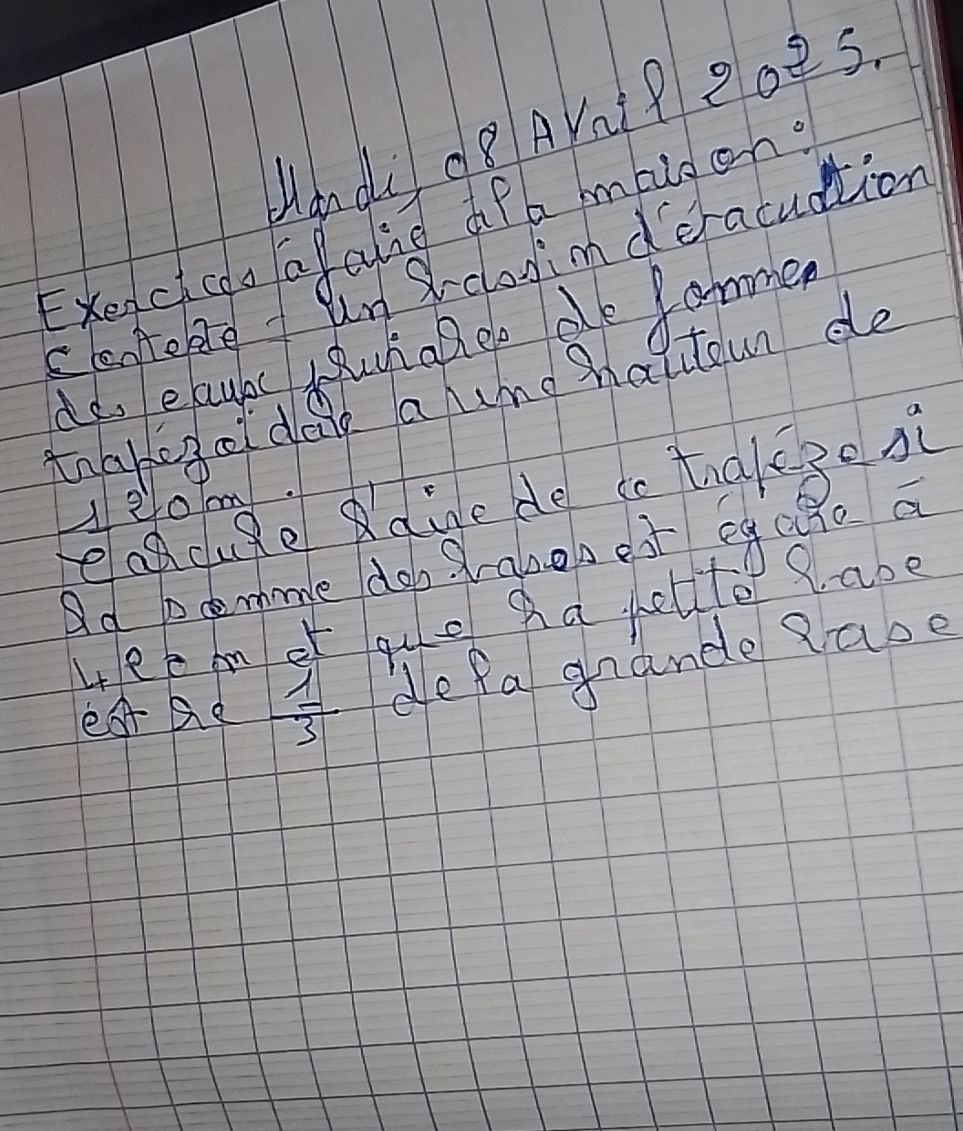 Mardi, 08 Avril 2025.
Exercices à faire à la maison:
- Un bassin d'évacuation
des eaux pluviales de forme
trapézoïdale a une hauteur de
120m.
calcule l'aire de ce trapèze si
la somme des bases est égale à
m et que la petite base
est le 1/3 de la grande base